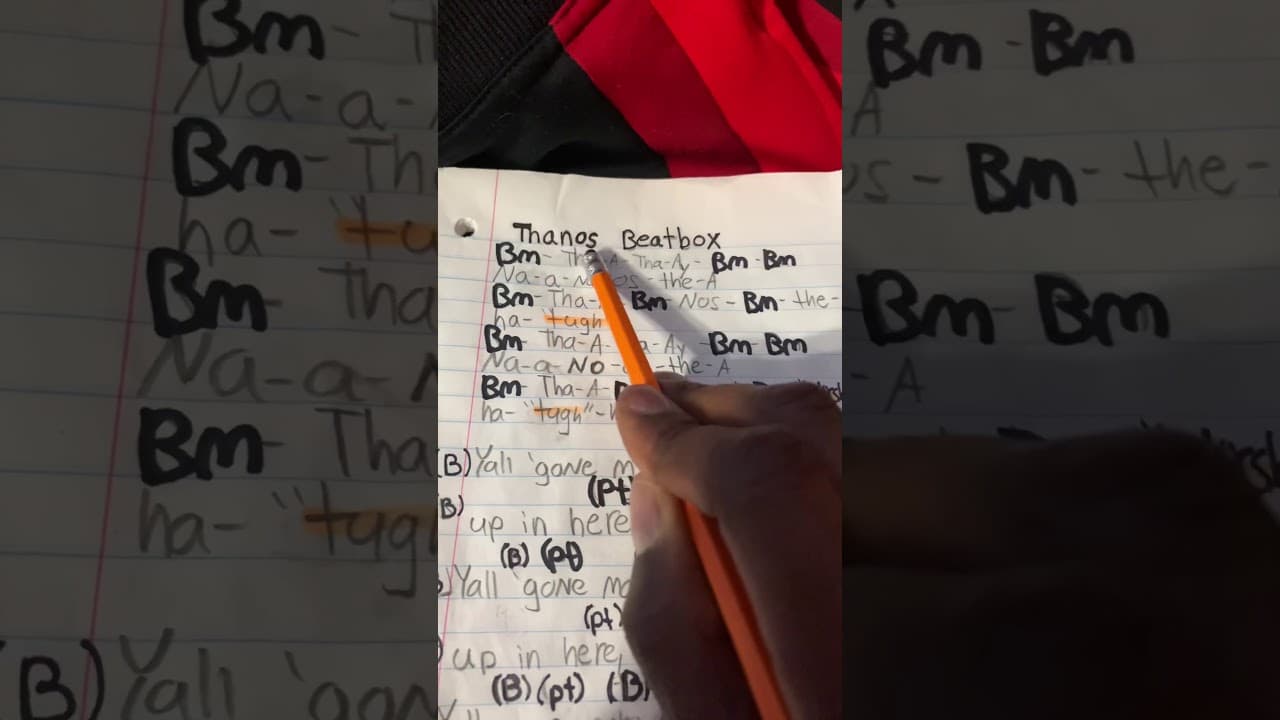 Thanos Beatbox
Bm- Tha-A- Tha-Ay- Bm -Bm
Na-a- os - the-A
Bm- Tha- Bm- Nos - Bm- the-
ha- "tugh
Bm- Tha-A- a-Ay -Bm Bm
Na-a- No - the-A
Bm- Tha-A-
ha- "tugh"-
(B) Yall 'gone
(pt)
B)
up in here
(B) (pt)
Yall 'gone
(pt)
up in here,
(B) (pt) (B)